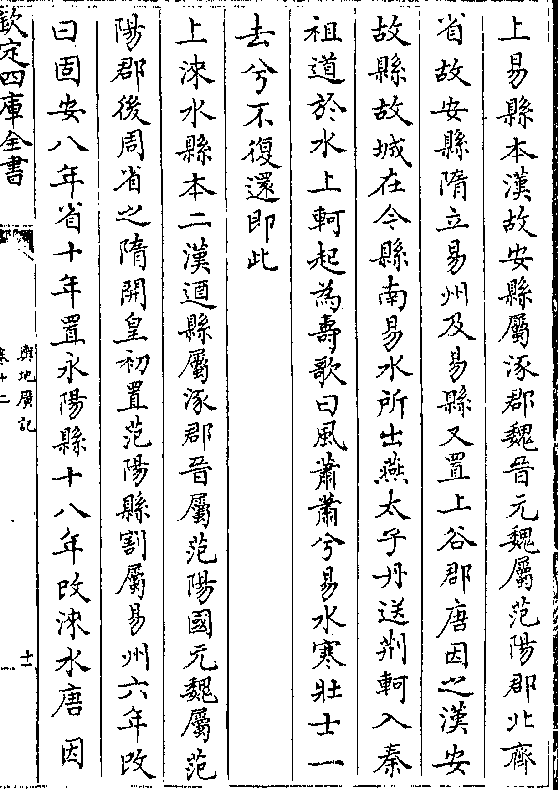 上易縣本漢故安縣屬涿郡魏晉元魏屬范陽郡北齊
省故安縣隋立易州及易縣又置上谷郡唐因之漢安
故縣故城在今縣南易水所出燕太子丹送荆軻入秦
祖道於水上軻起為壽歌曰風蕭蕭兮易水寒壯士一
去兮不復還即此
上淶水縣本二漢遒縣屬涿郡晉屬范陽國元魏屬范
陽郡後周省之隋開皇初置范陽縣割屬易州六年改
曰固安八年省十年置永陽縣十八年改淶水唐因
欽定四庫全書
輿地廣記
卷十二
十一